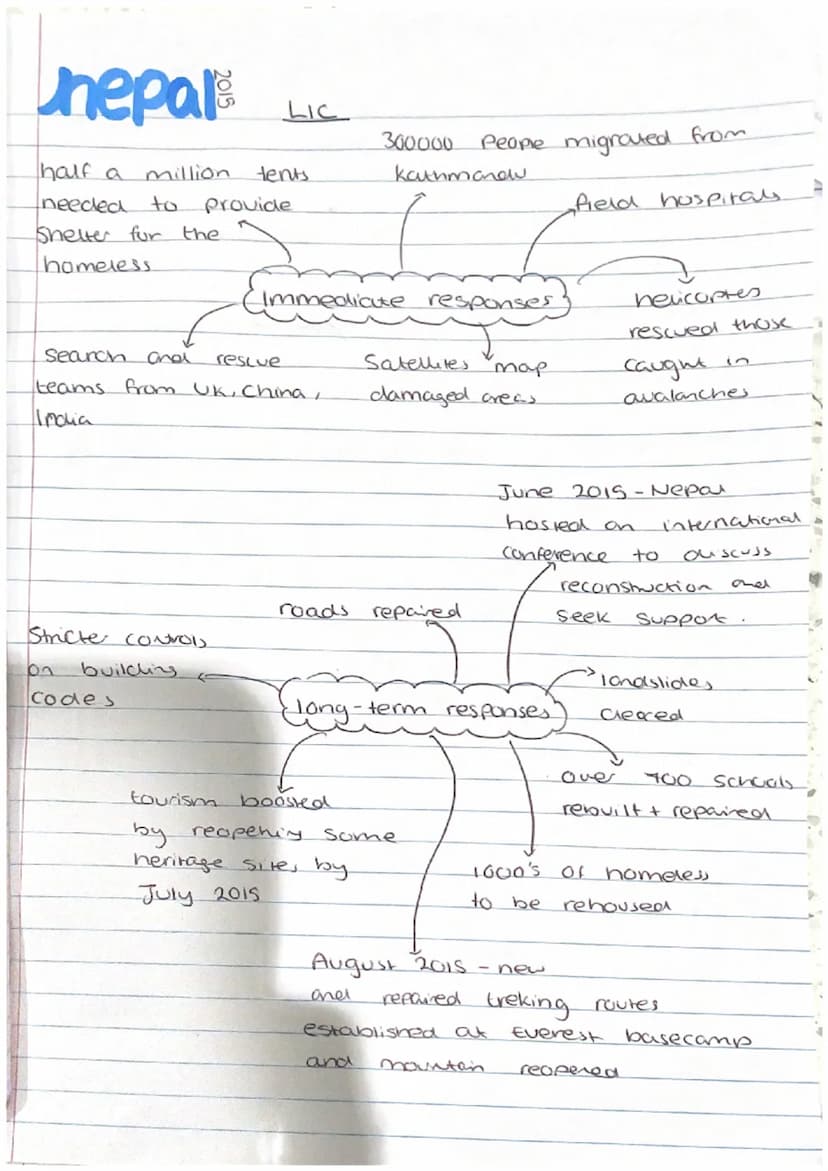 nepal 2015
LIC
300000 people migrated from
kathmandu
half a million tents
needed to provide
shelter for the
homeless
field hospitals
immediate responses
helicopters
rescued those
caught in
avalanches
search and rescue
teams from UK, China,
India
Satellites map
damaged areas
June 2015 - Nepal
hosted an international
conference to discuss
reconstruction and
seek support.
roads repaired
Stricter controls
on building
codes
landslides
cleared
long-term responses
over 700 schools
rebuilt + repaired
tourism boosted
by reopening some
heritage sites by
July 2015
1000's of homeless
to be rehoused
August 2015 - new
and repaired treking routes
established at Everest basecamp
and mountain reopened